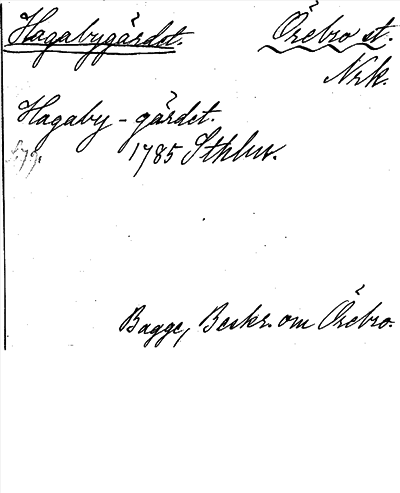 Hagabygärdet. Örebro st.
Nrk.
Hagaby - gärdet.
1785 Sthlm.
Bagge, Beskr. om Örebro.